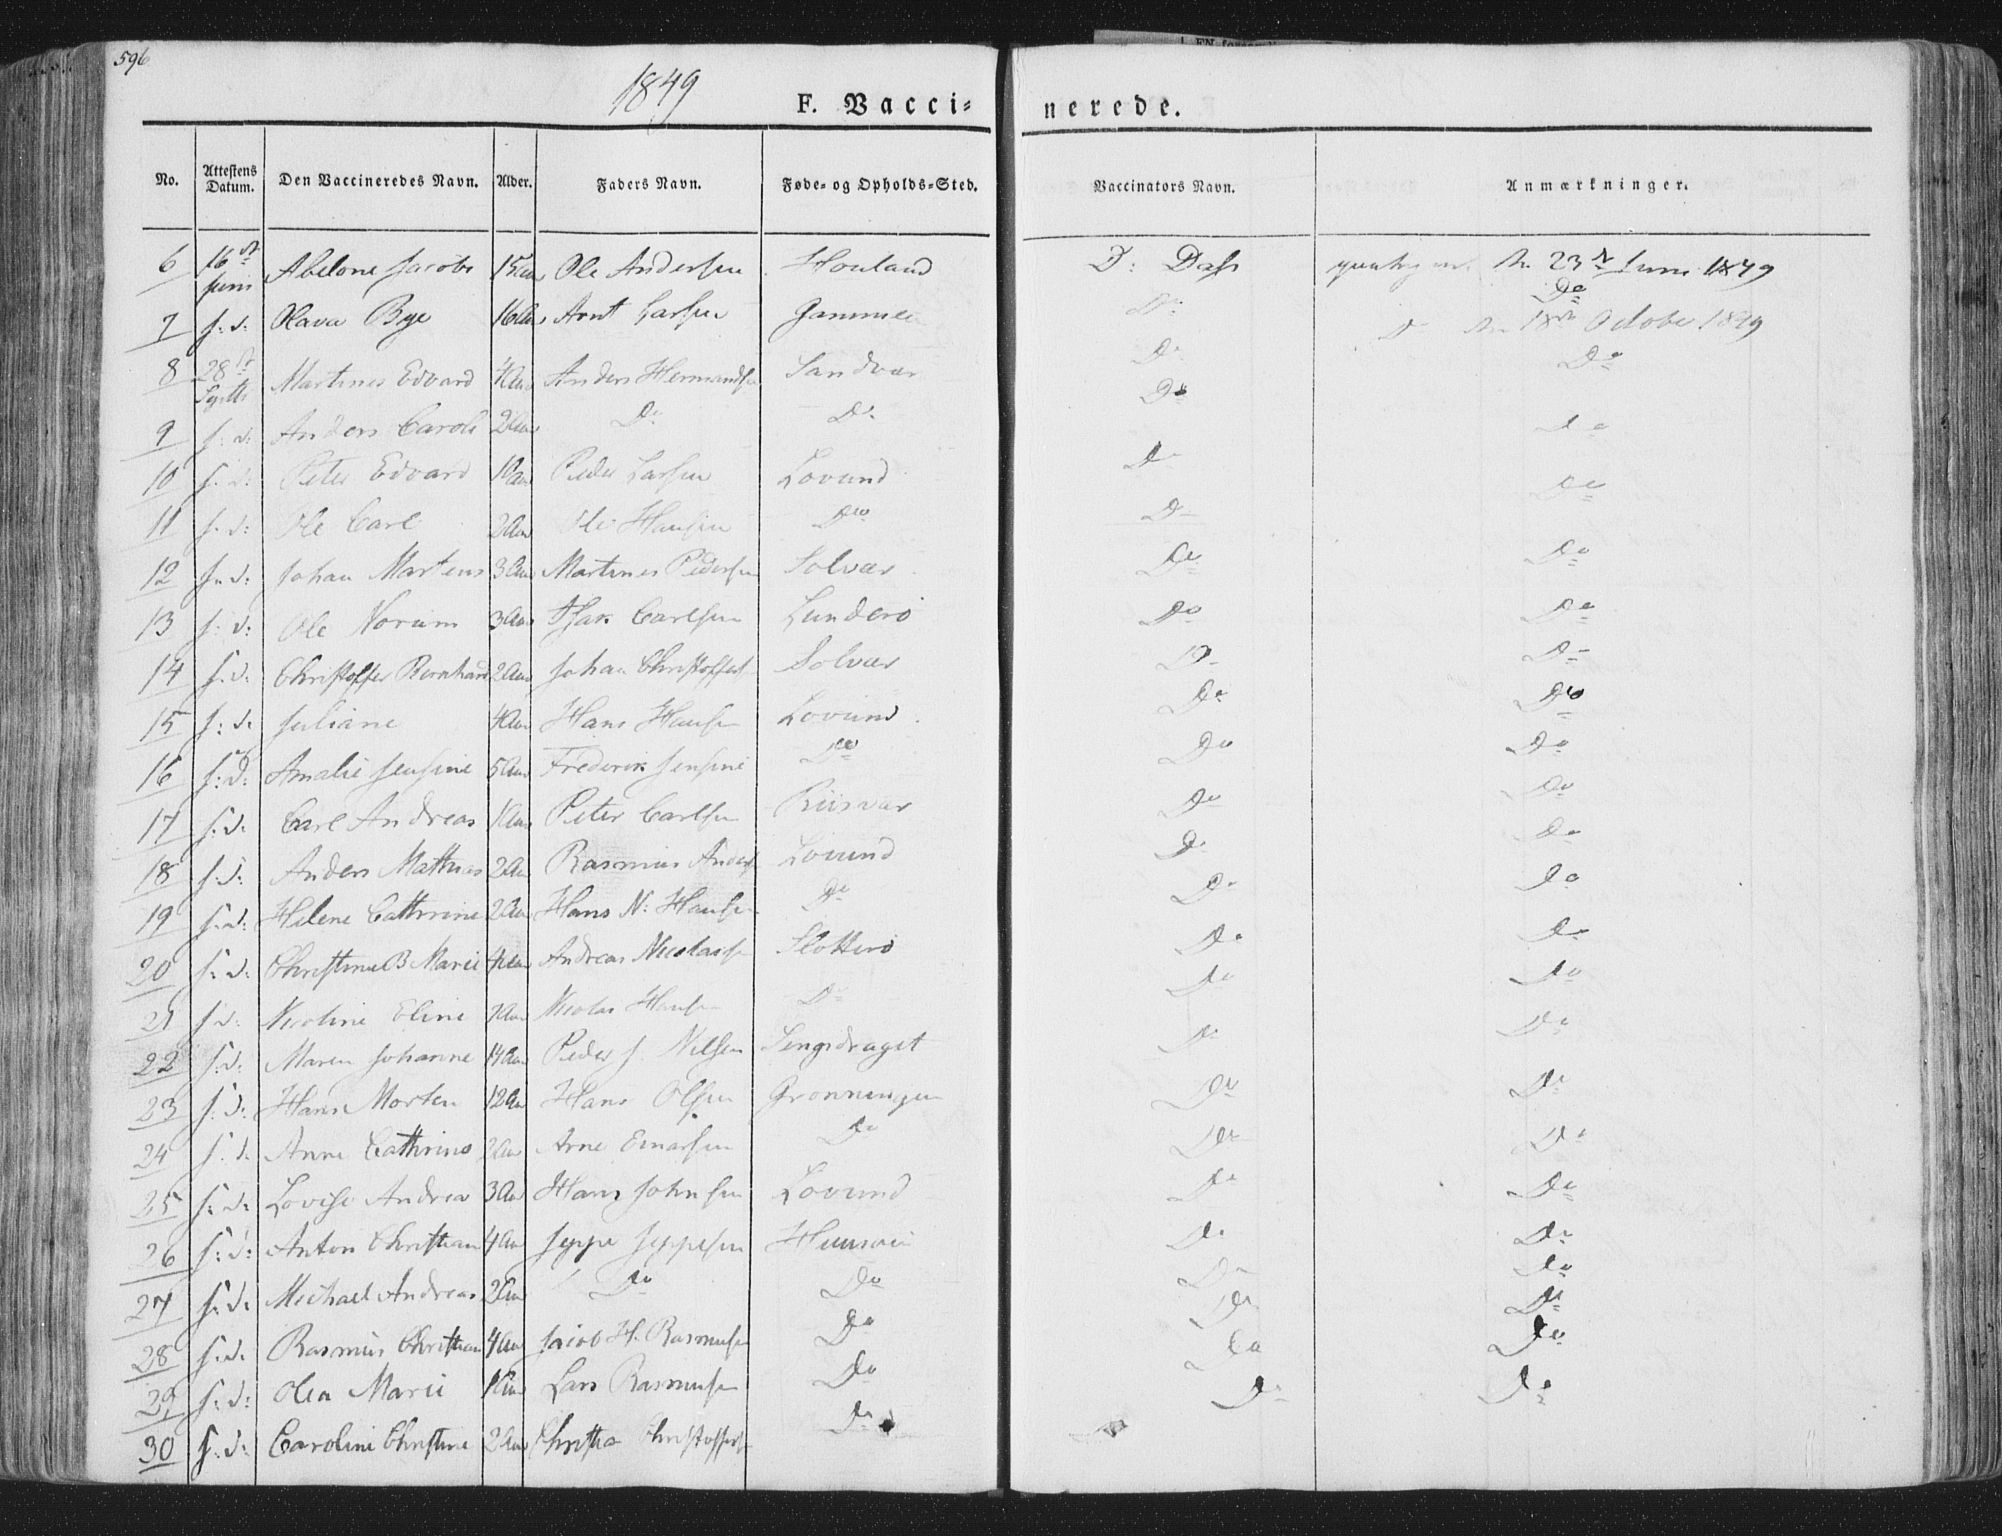 596
1849
F. Vacci=nerede.
No. Attestens Datum. Den Vaccineredes Navn. Alder. Faders Navn. Føde= og Opholds=Sted. Vaccinators Navn. Anmærkninger.
6 16de Juni Abelone Jacobs 15 Aar Ole Andersen Houland D: Dass den 23de Juni 1849
7 s: d: Olava Bye 16 Aar Arnt Larsen Do Do
8 28de Martines Edvard 4 Aar Anders Hermands Sandvær Do Do den 18de October 1849
9 s: d: Anders Caroli 2 Aar Do Do Do Do
10 s: d: Peter Edvard 1 Aar Peder Larsen Lovund Do Do
11 s: d: Ole Carl 2 Aar Ole Hansen Do Do Do
12 s: d: Johan Martens 3 Aar Martines Pedersen Solvær Do Do
13 s: d: Ole Norum 3 Aar Isak Carlsen Lunderø Do Do
14 s: d: Christoffer Bernhard 2 Aar Johan Christoffers Solvær Do Do
15 s: d: Juliane 4 Aar Hans Hansen Lovund Do Do
16 s: d: Amalie Jensine 5 Aar Frederik Jensine Do Do Do
17 s: d: Carl Andreas 1 Aar Peter Carlsen Riisvær Do Do
18 s: d: Anders Mathias 2 Aar Rasmus Anders Lovund Do Do
19 s: d: Helene Cathrine 2 Aar Hans N: Hansen Do Do Do
20 s: d: Christine B Marie 4 Aar Andreas Nicolais Slotterø Do Do
21 s: d: Nicoline Eline Aar Nicolai Hansen Do Do Do
22 s: d: Maren Johanne 14 Aar Peder J. Nilsen Lengsdraget Do Do
23 s: d: Hans Morten 12 Aar Hans Olsen Grønningen Do Do
24 s: d: Anne Cathrine 2 Aar Arne Einarsen Do Do Do
25 s: d: Lovise Andrea 3 Aar Hans Johnsen Lovund Do Do
26 s: d: Anton Christian 4 Aar Jeppe Jeppesen Do Do
27 s: d: Michael Andreas 2 Aar Do Do Do Do
28 s: d: Rasmus Christian 4 Aar Jacob H. Rasmusen Do Do Do
29 s: d: Olea Marie 1 Aar Lars Rasmusen Do Do Do
30 s: d: Caroline Christine 2 Aar Christoffers Do